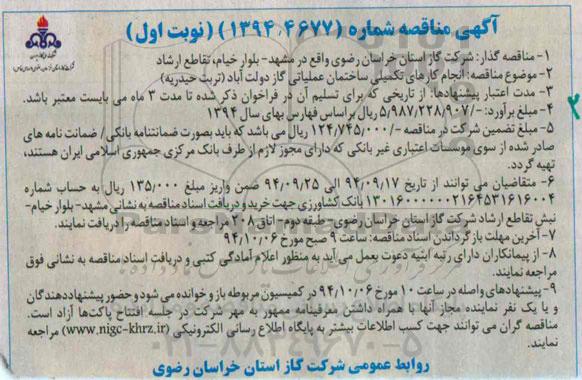 آگهی مناقصه شماره (۱۳۹۴،۴۶۷۷) (نوبت اول)
۱- مناقصه گذار: شرکت گاز استان خراسان رضوی واقع در مشهد- بلوار خیام، تقاطع ارشاد
۲- موضوع مناقصه: انجام کارهای تکمیلی ساختمان عملیاتی گاز دولت آباد (تربت حیدریه)
۳- مدت اعتبار پیشنهادها: از تاریخی که برای تسلیم آن در فراخوان ذکر شده تا مدت ۳ ماه می بایست معتبر باشد.
۴- مبلغ برآورد: -/۵/۹۸۷/۲۲۸/۹۰۷ ریال براساس فهارس بهای سال ۱۳۹۴
۵- مبلغ تضمین شرکت در مناقصه -/۱۲۴/۷۴۵/۰۰۰ ریال می باشد که باید بصورت ضمانتنامه بانکی / ضمانت نامه های
صادر شده از سوی موسسات اعتباری غیر بانکی که دارای مجوز لازم از طرف بانک مرکزی جمهوری اسلامی ایران هستند،
تهیه گردد.
۶- متقاضیان می توانند از تاریخ ۹۴/۰۹/۱۷ الی ۹۴/۰۹/۲۵ ضمن واریز مبلغ ۱۳۵/۰۰۰ ریال به حساب شماره
بانک کشاورزی جهت خرید و دریافت اسناد مناقصه به نشانی مشهد- بلوار خیام-
نبش تقاطع ارشاد شرکت گاز استان خراسان رضوی- طبقه دوم- اتاق ۲۰۸ مراجعه و اسناد مناقصه را دریافت نمایند.
۷- آخرین مهلت بازگرداندن اسناد مناقصه: ساعت ۹ صبح مورخ ۹۴/۱۰/۰۶
۸- از پیمانکاران دارای رتبه ابنیه دعوت بعمل می آید به منظور اعلام آمادگی کتبی و دریافت اسناد مناقصه به نشانی فوق
مراجعه نمایند.
۹- پیشنهادهای واصله در ساعت ۱۰ مورخ ۹۴/۱۰/۰۶ در کمیسیون مربوطه باز و خوانده می شود و حضور پیشنهاددهندگان
و یا یک نفر نماینده مجاز آنها با همراه داشتن معرفینامه ممهور به مهر شرکت در جلسه افتتاح پاکت‌ها آزاد است.
مناقصه گران می توانند جهت کسب اطلاعات بیشتر به پایگاه اطلاع رسانی الکترونیکی (www.nigc-khrz.ir) مراجعه
نمایند.
روابط عمومی شرکت گاز استان خراسان رضوی